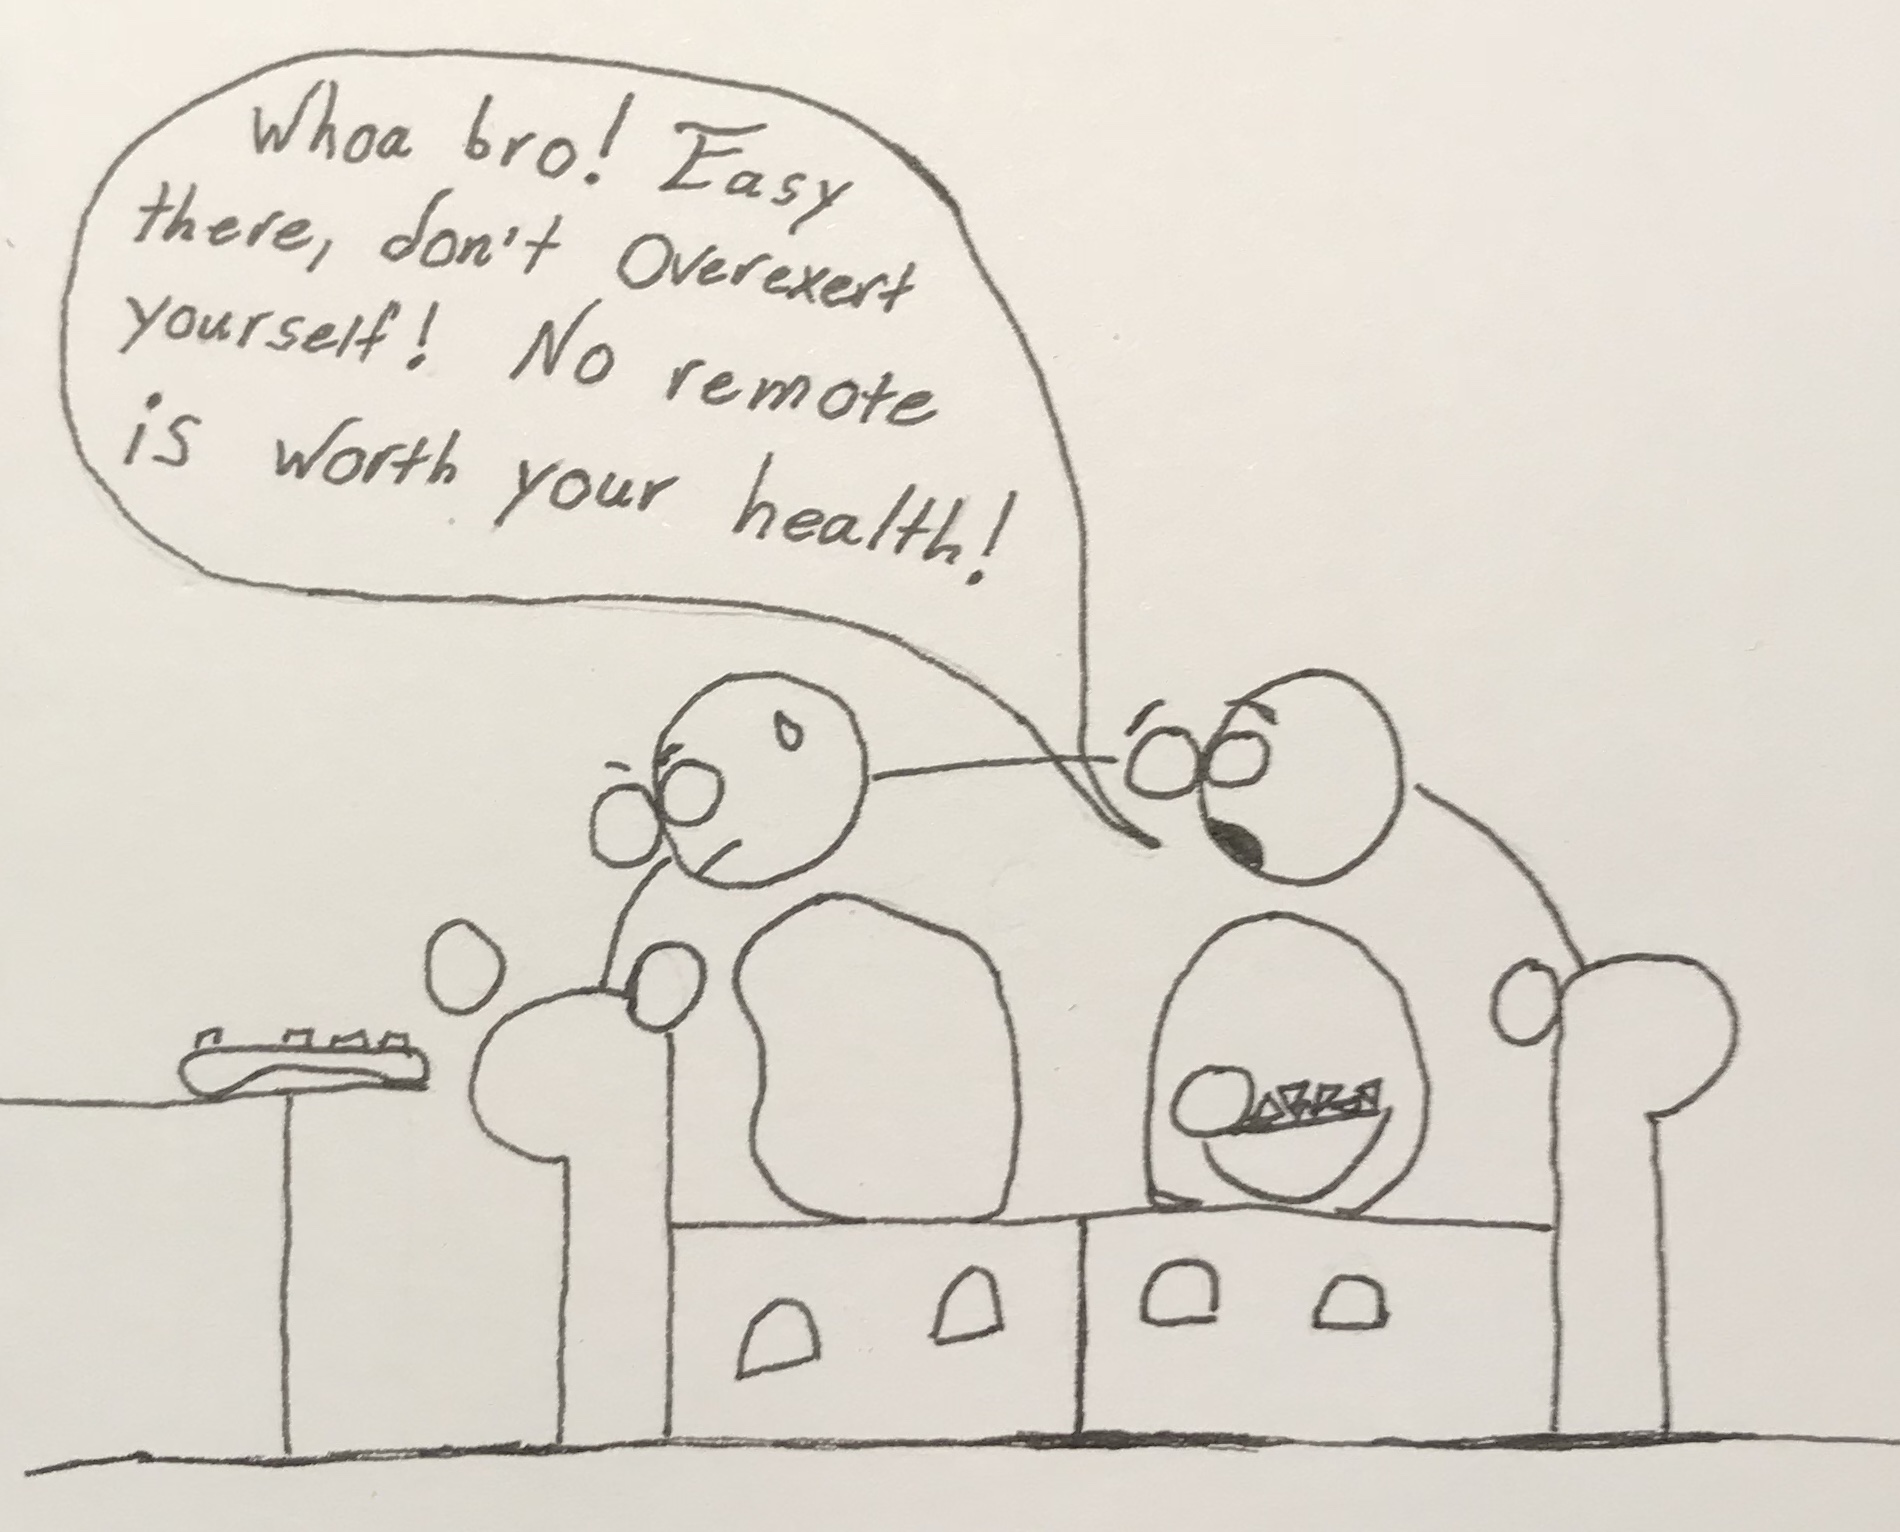 Whoa bro! Easy
there, don't Overexert
yourself! No remote
is worth your health!